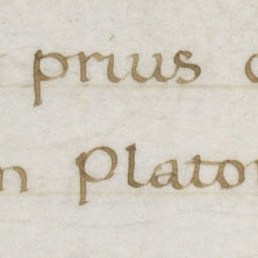 prius
n Plato